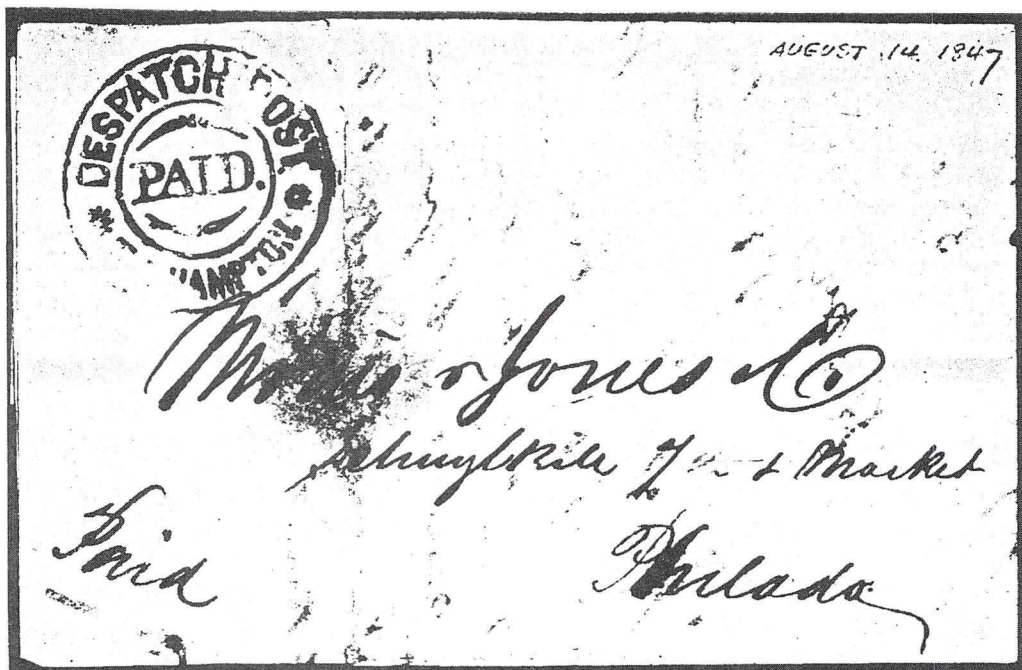 AUGUST 14 1847
DESPATCH POST
PAID.
Morris & Jones & Co
Schuylkill 7th & Market
Paid
Philada